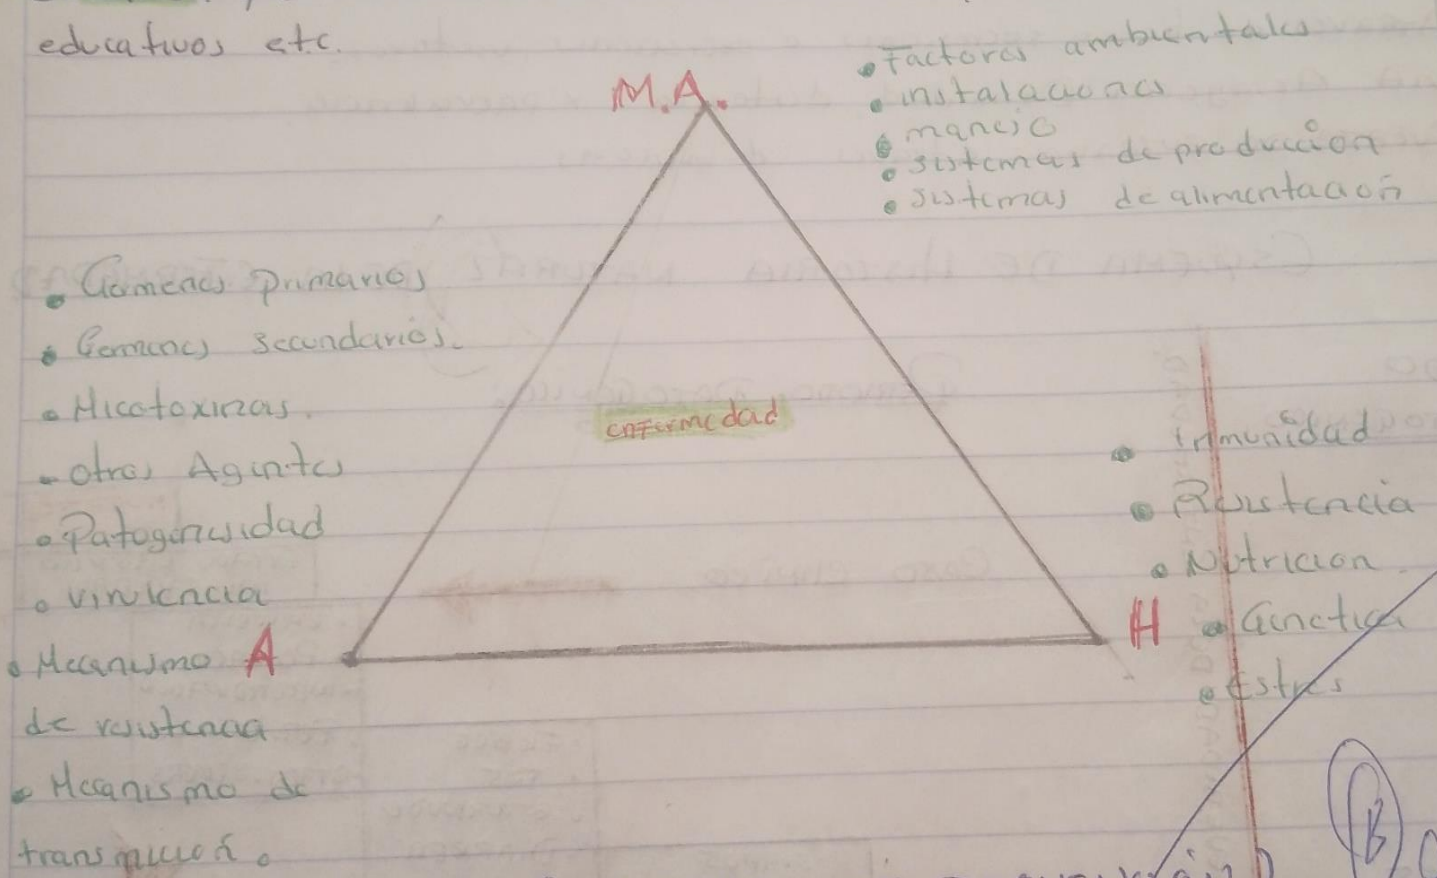 educativos etc.
M.A.
• Factores ambientales
• instalaciones
• manejo
• sistemas de producción
• sistemas de alimentación
• Germenes primarios
• Germenes secundarios.
• Micotoxinas.
- Otros Agentes
• Patogenicidad
• Virulencia
• Mecanismo
de resistencia
• Mecanismo de
transmición.
A
enfermedad
H
• inmunidad
• Resistencia
• Nutricion
• Genetica
• Estres
B